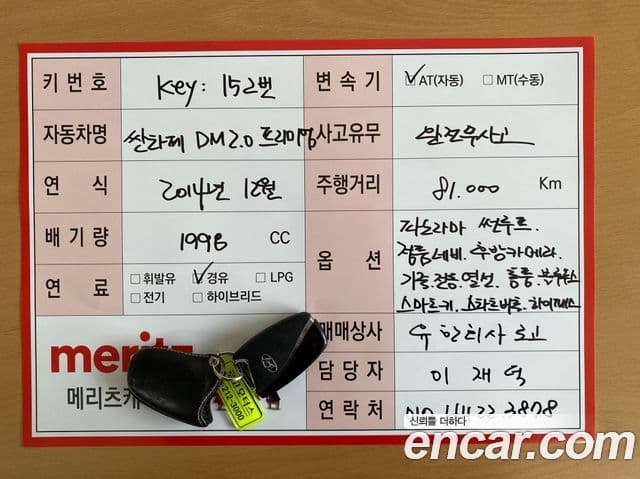 키 번 호 Key: 152번 변 속 기 ☑AT(자동) □MT(수동)
자동차명 싼타페 DM 2.0 프리미엄 사고유무 완전무사고
연 식 2014년 12월 주행거리 81.000 Km
배 기 량 1998 CC
옵 션 파노라마 썬루프.
정품네비. 후방카메라.
가죽.전동.열선.통풍.블루투스
스마트키.스타트버튼.하이패스
연 료 □휘발유 ☑경유 □LPG
□전기 □하이브리드
매매상사
담 당 자 이 재
연 락 처 3828
meritz
메리츠캐
모터스
212-3000
신뢰를 더하다
encar.com